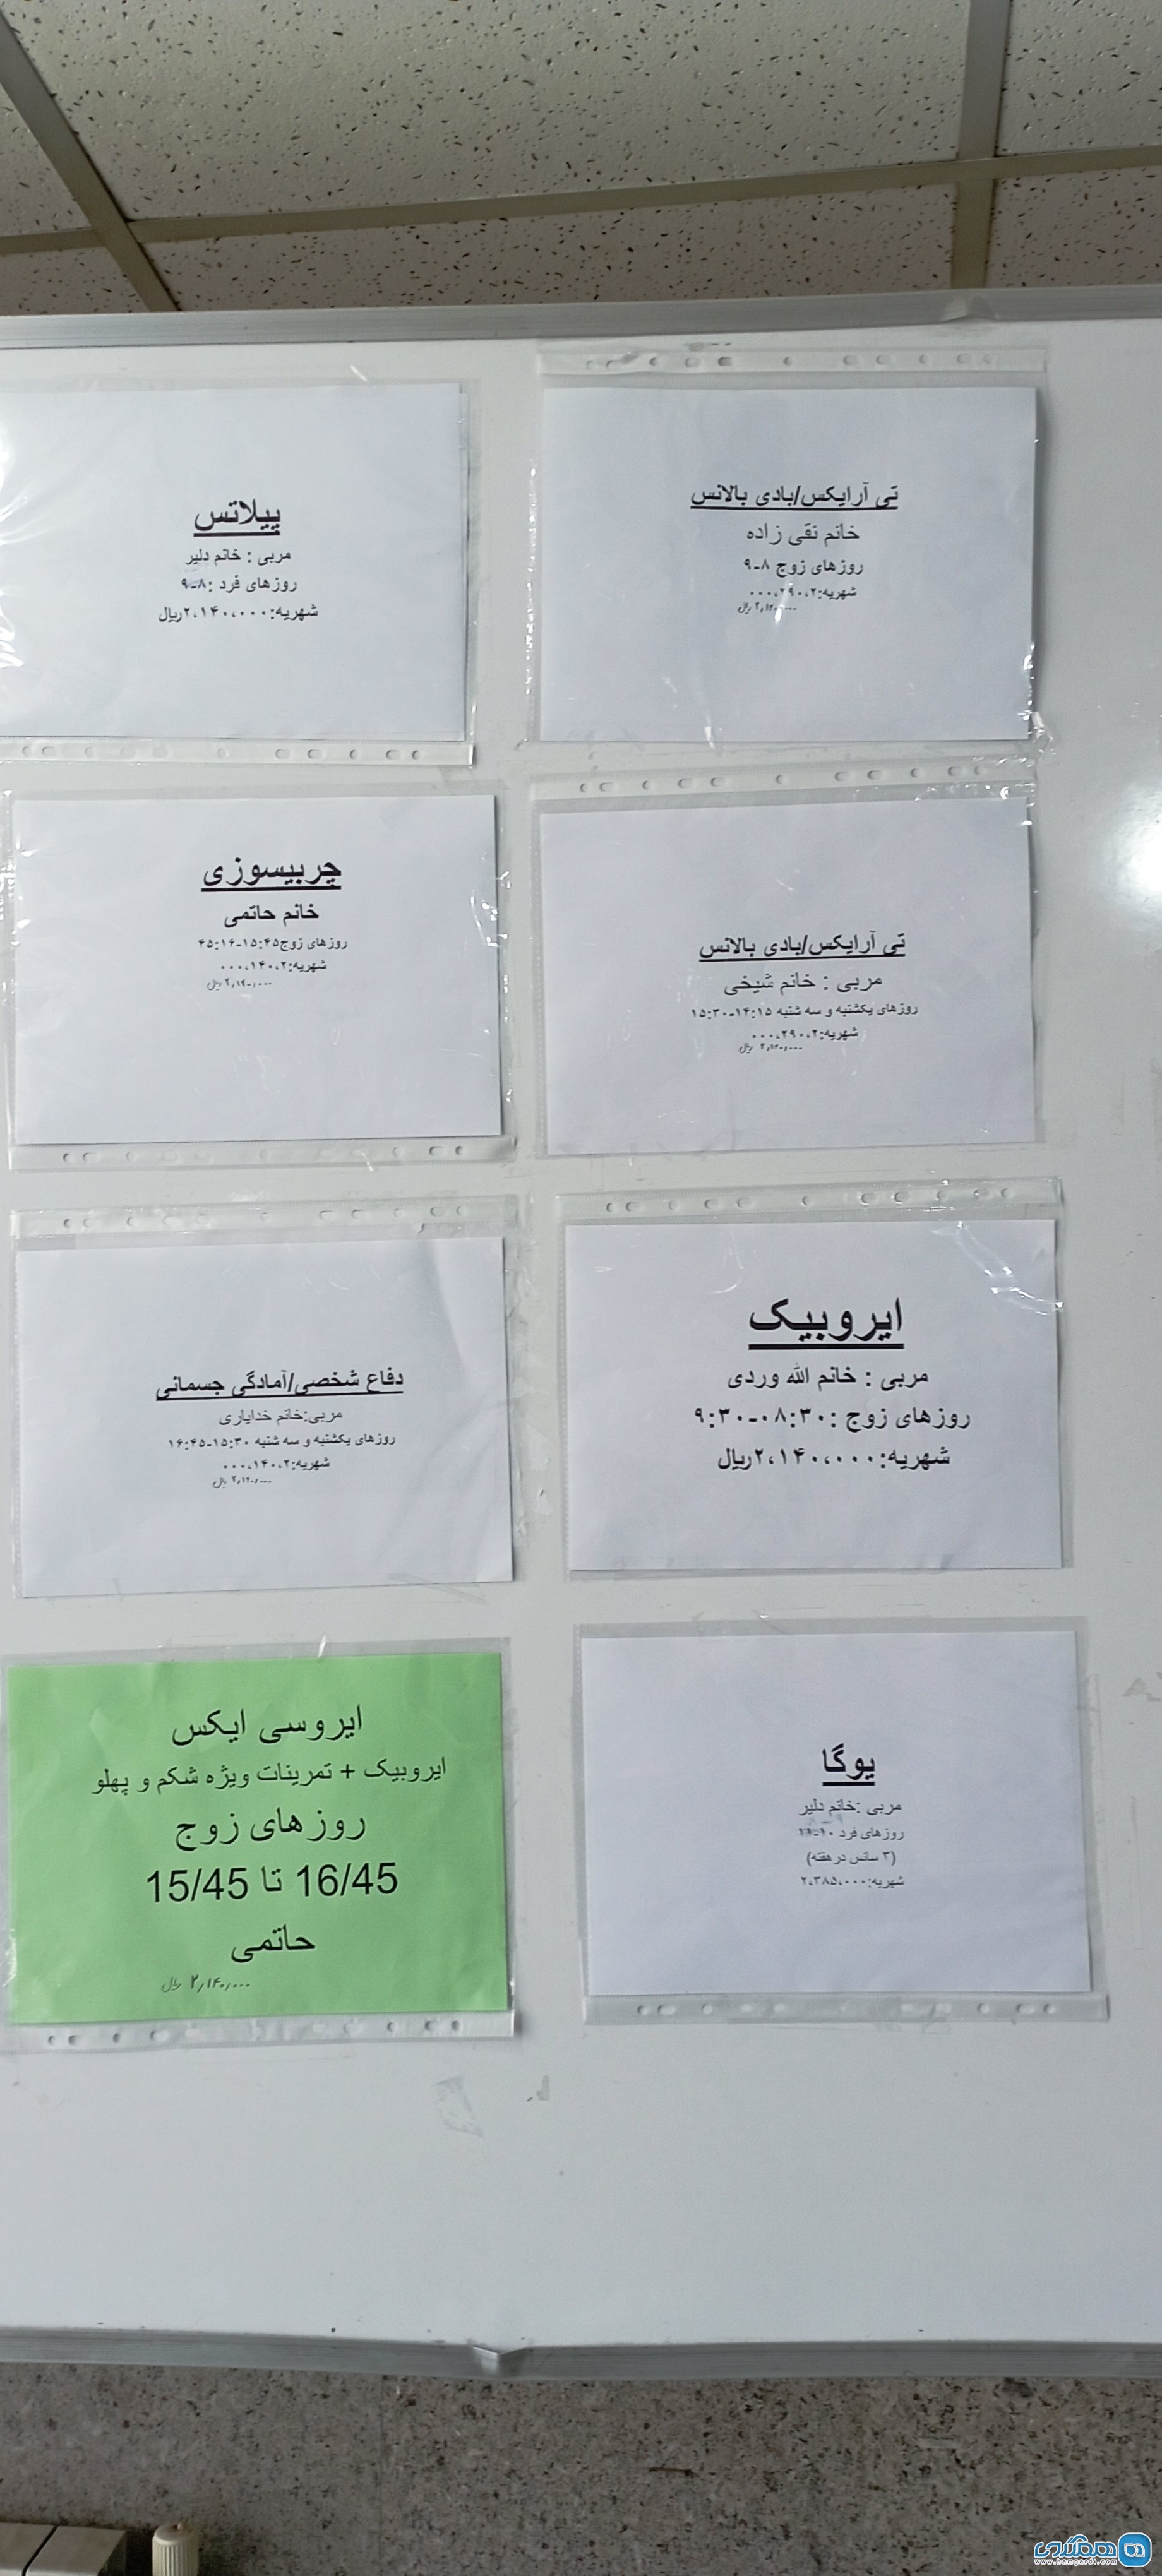 تی آرایکس/بادی بالانس
خانم نقی زاده
روزهای زوج ۸-۹
شهریه:۲،۲۹۰،۰۰۰
ریال
پیلاتس
مربی : خانم دلیر
روزهای فرد :۸-۹
شهریه:۲،۱۴۰،۰۰۰ریال
تی آرایکس/بادی بالانس
مربی : خانم شیخی
روزهای یکشنبه و سه شنبه ۱۴:۱۵-۱۵:۳۰
شهریه:۲،۲۹۰،۰۰۰
ریال
چربیسوزی
خانم حاتمی
روزهای زوج۱۵:۴۵-۴۵:۱۶
شهریه:۲،۱۴۰،۰۰۰
۲٫۱۴۰٫۰۰۰ ریال
ایروبیک
مربی : خانم الله وردی
روزهای زوج :۰۸:۳۰-۹:۳۰
شهریه:۲،۱۴۰،۰۰۰ریال
دفاع شخصی/آمادگی جسمانی
مربی:خانم خدایاری
روزهای یکشنبه و سه شنبه ۱۵:۳۰-۱۶:۴۵
شهریه:۲،۱۴۰،۰۰۰
ریال
یوگا
مربی :خانم دلیر
روزهای فرد
(۳ سانس درهفته)
شهریه:۲،۳۸۵،۰۰۰
ایروسی ایکس
ایروبیک + تمرینات ویژه شکم و پهلو
روزهای زوج
16/45 تا 15/45
حاتمی
۲٫۱۴۰٫۰۰۰ ریال
همگردی
www.hamgardi.com